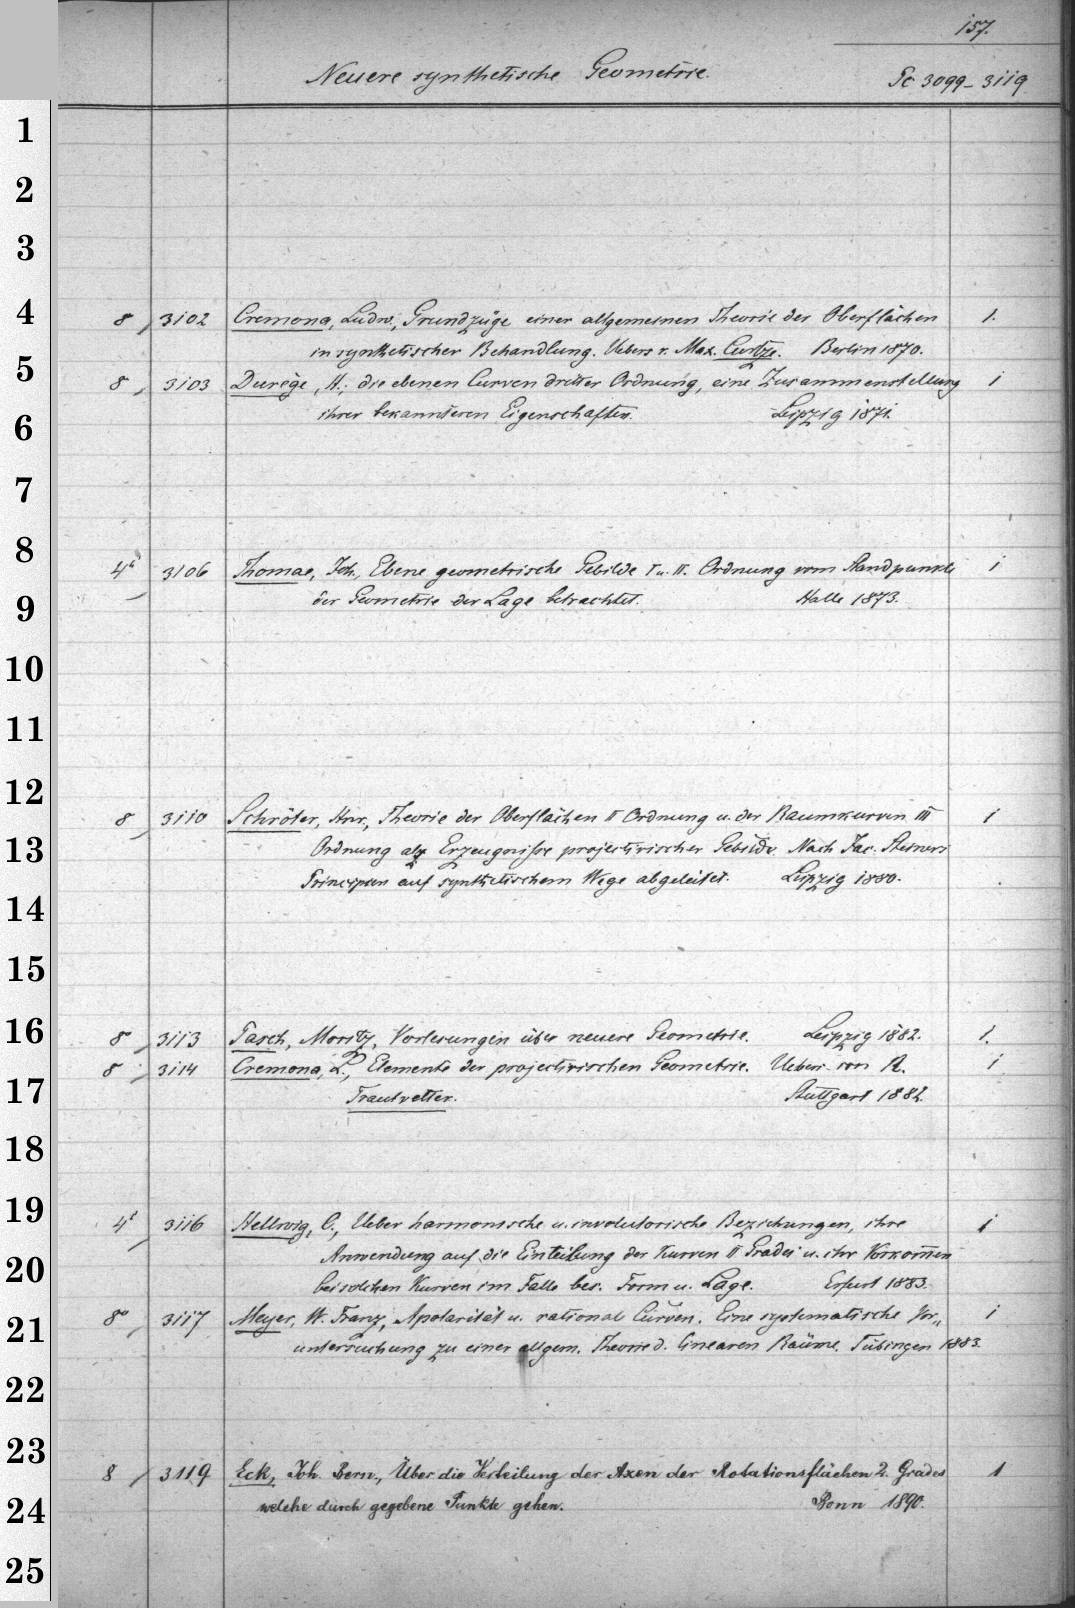 157.
Neuere synthetische Geometrie. Pc 3099-3119
1
2
3
4
8 3102 Cremona, Ludw., Grundzüge einer allgemeinen Theorie der Oberflächen 1.
in synthetischer Behandlung. Uebers v. Max. Curtze. Berlin 1870.
5
8 3103 Durège, H., die ebenen Curven dritter Ordnung, eine Zusammenstellung 1
ihrer bekannteren Eigenschaften. Leipzig 1871.
6
7
8
4° 3106 Thomae, Joh., Ebene geometrische Gebilde I u. II. Ordnung vom Standpunkte 1
der Geometrie der Lage betrachtet. Halle 1873.
9
10
11
12
8 3110 Schröter, Hnr., Theorie der Oberflächen II Ordnung u. der Raumkurven III 1
Ordnung als Erzeugnisse projectivischer Gebilde. Nach Jac. Steiners
13
Principien auf synthetischem Wege abgeleitet. Leipzig 1880.
14
15
16
8 3113 Pasch, Moritz, Vorlesungen über neuere Geometrie. Leipzig 1882. 1.
8 3114 Cremona, L., Elemente der projectivischen Geometrie. Uebers. von R. 1
17
Trautvetter. Stuttgart 1882.
18
19
4° 3116 Hellwig, C., Ueber harmonische u. involutorische Beziehungen, ihre 1
Anwendung auf die Einteilung der Kurven II Grades u. ihr Vorkom̅en
20
bei solchen Kurven im Falle bes. Form u. Lage. Erfurt 1883.
8° 3117 Meyer, W. Franz, Apolarität u. rational Curven. Eine systematische Vor„ 1
21
untersuchung zu einer allgem. Theorie d. linearen Räume. Tübingen 1883.
22
23
8 3119 Eck, Joh. Bern., Über die Verteilung der Axen der Rotationsflächen 2. Grades 1
24
welche durch gegebene Punkte gehen. Bonn 1890.
25